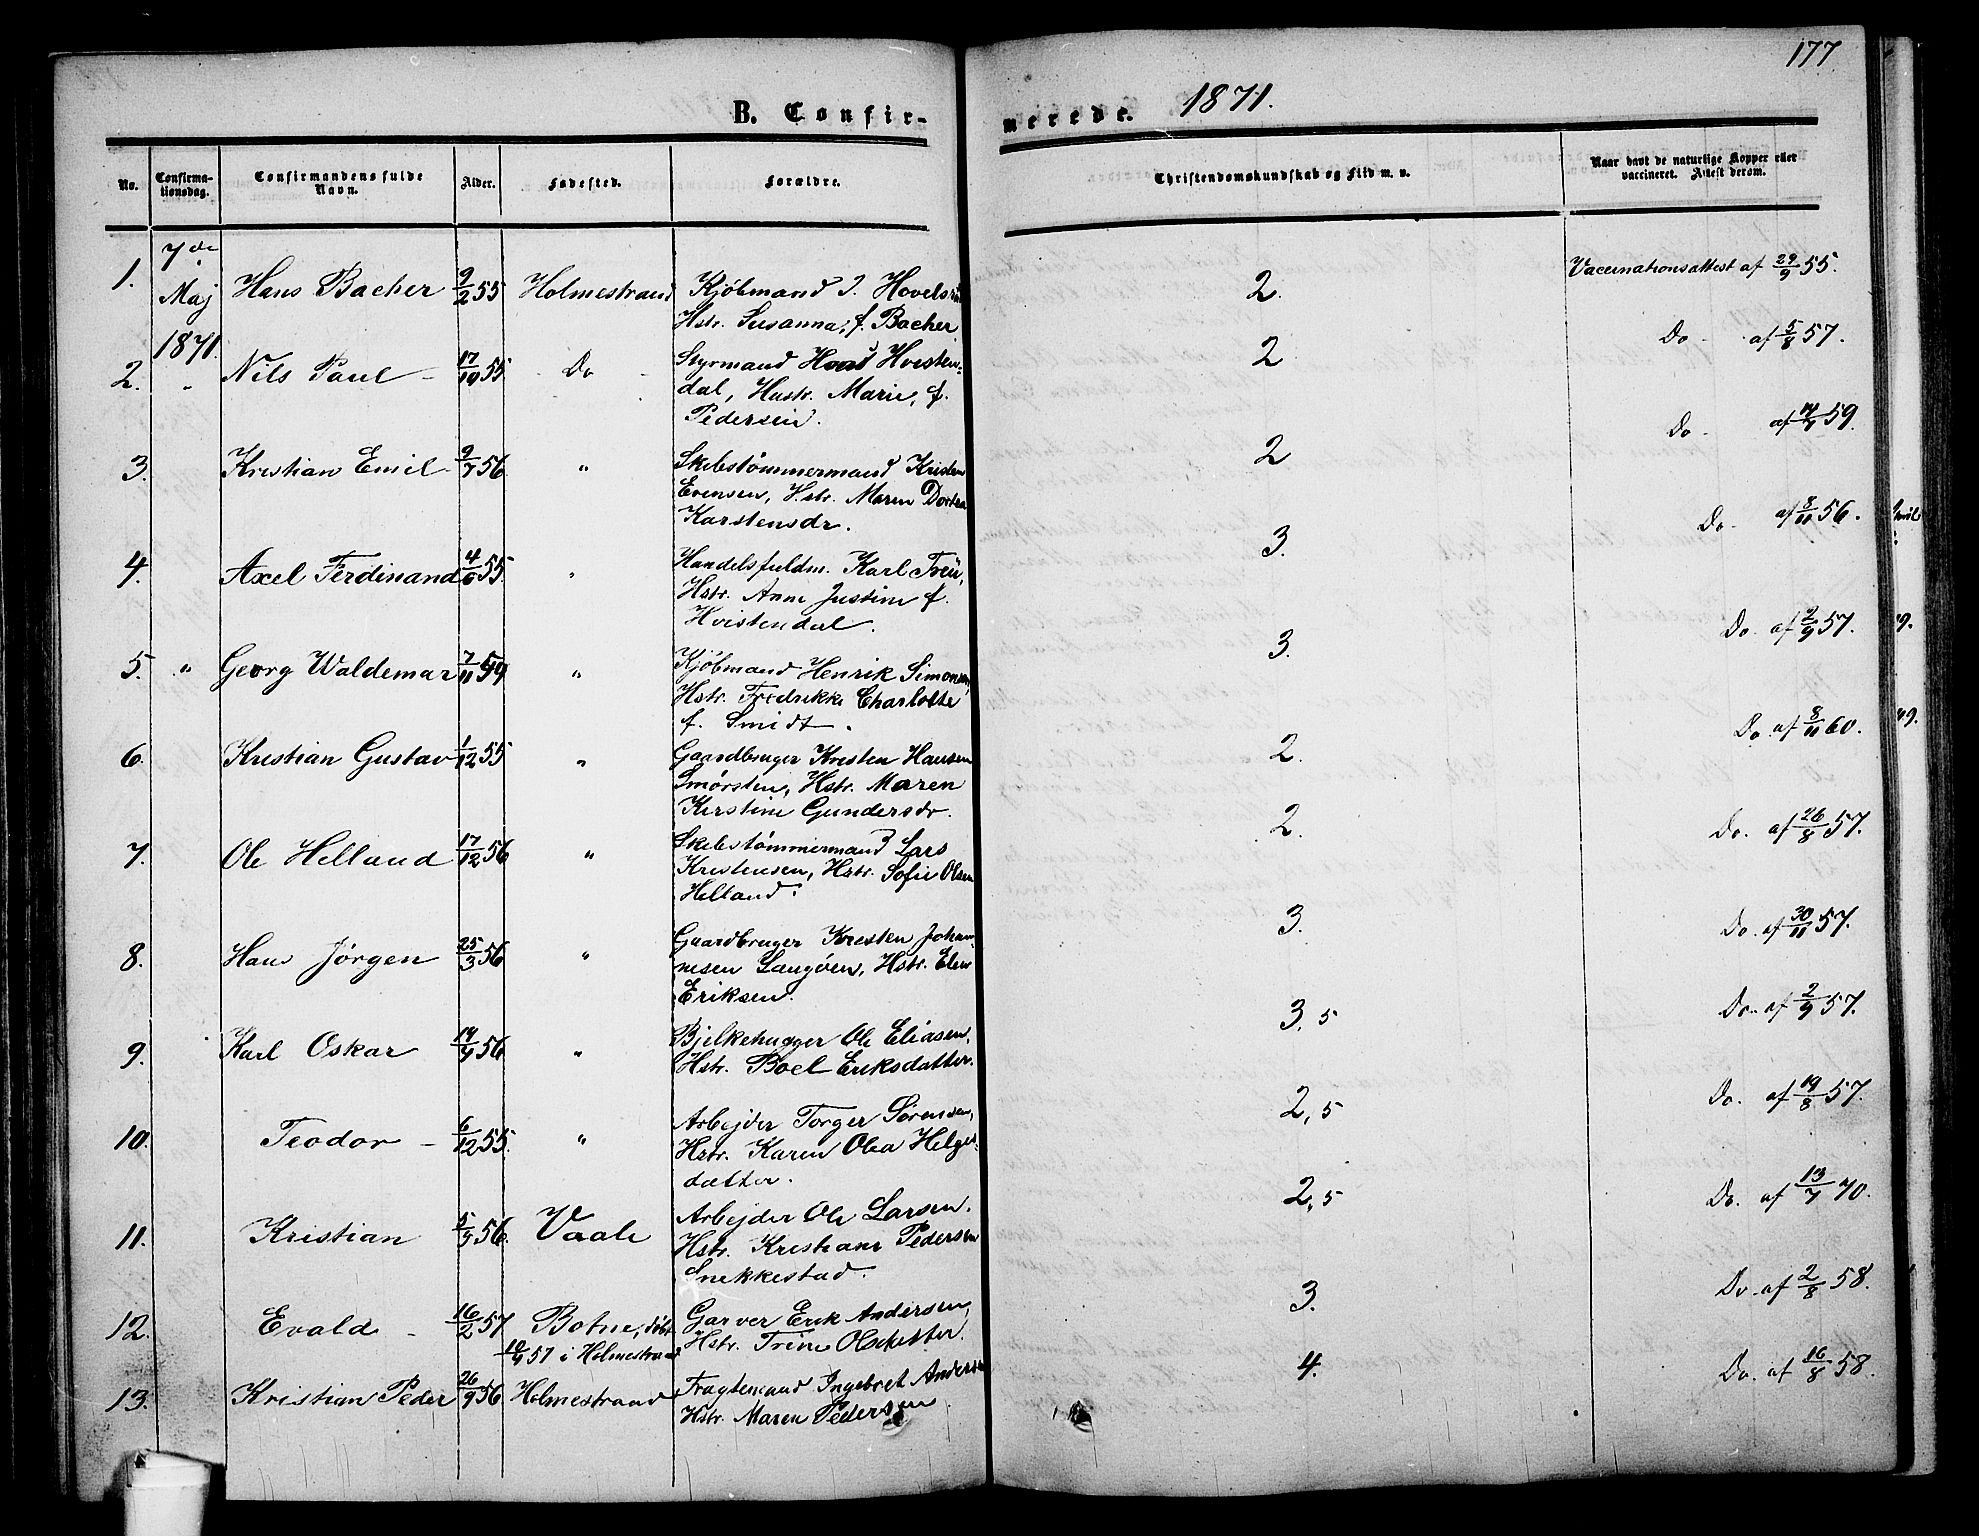 177
B. Confir-
merede. 1871.
No.
Confirma-
tionsdag.
Confirmandens fulde
Navn.
Alder.
Fødested.
Forældre.
Christendomskundskab og Flid m. v.
Naar havt de naturlige Kopper eller
vaccineret. Attest derom.
7de
Maj
1871.
1. Hans Bacher 9/2 55 Holmestrand Kjøbmand J.
Hstr. Susanna, f. Bacher
2. Vaccinationsattest af 29/9 55.
2. " Nils Paul - 17/10 55 Do Styrmand Hvisten-
dal, Hustr. Marie, f.
Pedersen.
2 Do - af 5/8 57.
3. Kristian Emil 9/7 56 " Skibstømmermand Kristen
Evensen, Hstr. Maren Dortea
Karstensdr.
2 Do - af 59.
4. Axel Ferdinand 4/6 55 " Handelsfuldm. Karl
Hstr. Anne Justine f.
Hvistendal.
3. Do - af 8/11 56.
5. " Georg Waldemar 7/11 " Kjøbmand Henrik Simonsen,
Hstr. Fredrikke Charlotte
f. Smidt.
3. Do. af 2/9 57.
6. Kristian Gustav 1/12 55 " Gaardbruger Kristen Hansen
Smørsten, Hstr. Maren
Kirstine Gundersdr.
2. Do. af 8/11 60.
7. Ole Helland 17/12 56 " Skibstømmermand Lars
Kristensen, Hstr. Sofie Olsen
Helland.
2. Do. af 26/8 57.
8. Hans Jørgen 25/3 56 " Gaardbruger Kristen Johan-
nesen Langøen, Hstr. Elen
Eriksen.
3. Do. af 30/11 57.
9. Karl Oskar 14/4 56 " Bjelkehugger Ole Eliasen,
Hstr. Boel Eriksdatter.
3,5 Do. af 2/9 57.
10. Teodor - 6/12 55. " Arbejder Torger Sørensen,
Hstr. Karen Olea Helges-
datter.
2,5 Do. af 19/8 57.
11. Kristian 5/9 56. Vaale Arbejder Ole Larsen.
Hstr. Kristiane Pedersen
Snekkestad.
2,5 Do. af 13/7 70.
12. Evald - 16/2 57 Botne, døbt
10/4 57 i Holmestrand
Garver Erik Andersen,
Hstr. Trine Olsdatter.
3. Do. af 2/8 58.
13. Kristian Peder 26/9 56 Holmestrand Fragtemand Ingebret Andersen
Hstr. Maren Pedersen
4. Do. af 16/8 58.